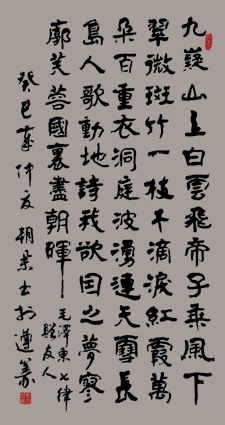 九嶷山上白雲飛帝子乘風下
翠微斑竹一枝千滴淚紅霞萬
朵百重衣洞庭波湧連天雪長
島人歌動地詩我欲因之夢寥
廓芙蓉國裏盡朝暉——毛澤東七律
答友人
癸巳 仲友 於遵義